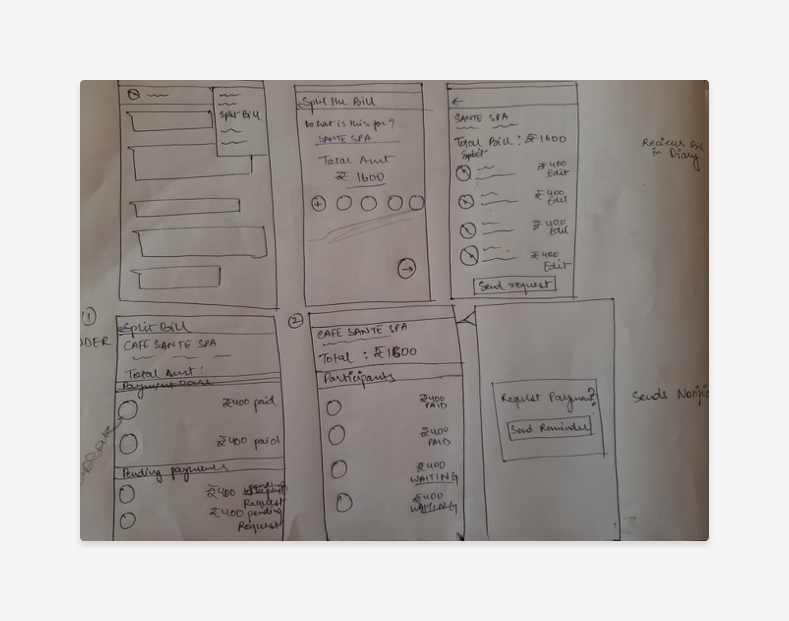 Split Bill
Split the Bill
What is this for?
SANTE SPA
Total Amt
₹ 1600
SANTE SPA
Total Bill : ₹1600
Split
₹400
Edit
₹400
Edit
₹400
Edit
₹400
Edit
Send request
in Diary
①
Split Bill
CAFE SANTE SPA
Total Amt :
Payment done
₹400 paid
₹400 paid
Pending payments
₹400 pending
Request
₹400 pending
Request
②
CAFE SANTE SPA
Total : ₹1600
Participants
₹400
PAID
₹400
PAID
₹400
WAITING
₹400
WAITING
Request Payment?
Send Reminder
Sends